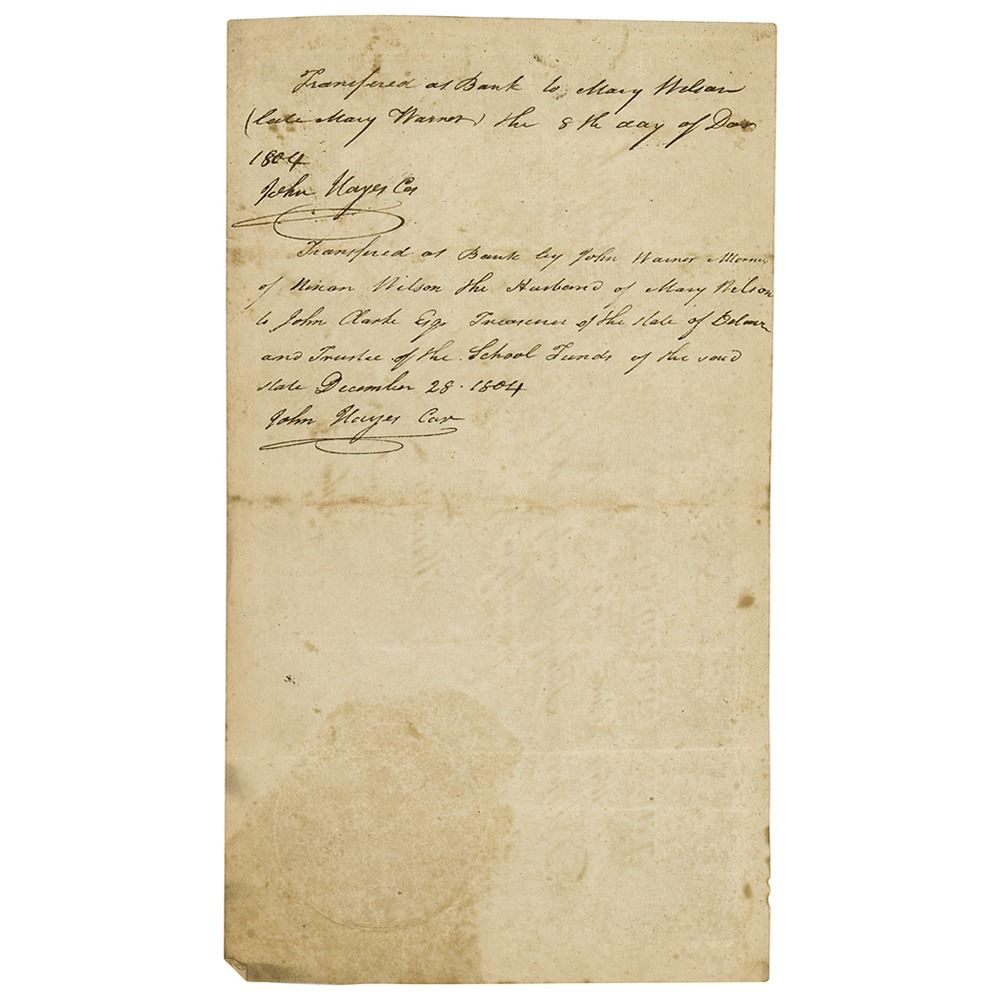 Transfered at Bank to Mary Wilson
(late Mary Warner) the 8th day of Dec
1804
John Hayes Cas
Transfered at Bank by John Warner Attorney
of Wilson the Husband of Mary Wilson
to John Clarke Esqr Treasurer of the state of Delawr
and Trustee of the School Funds of the said
state December 28. 1804
John Hayes Cas